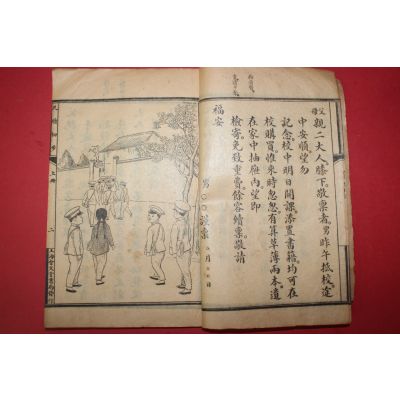 父母親二大人膝下敬稟者男昨午抵校途
中安順望勿
記念校中明日開課添置書籍均可在
校購買惟來時忽忽有算草簿兩本遺
在家中抽屜內望即
檢寄免致重費餘容續稟敬請
福安
男〇〇謹稟 月 日
上冊
二